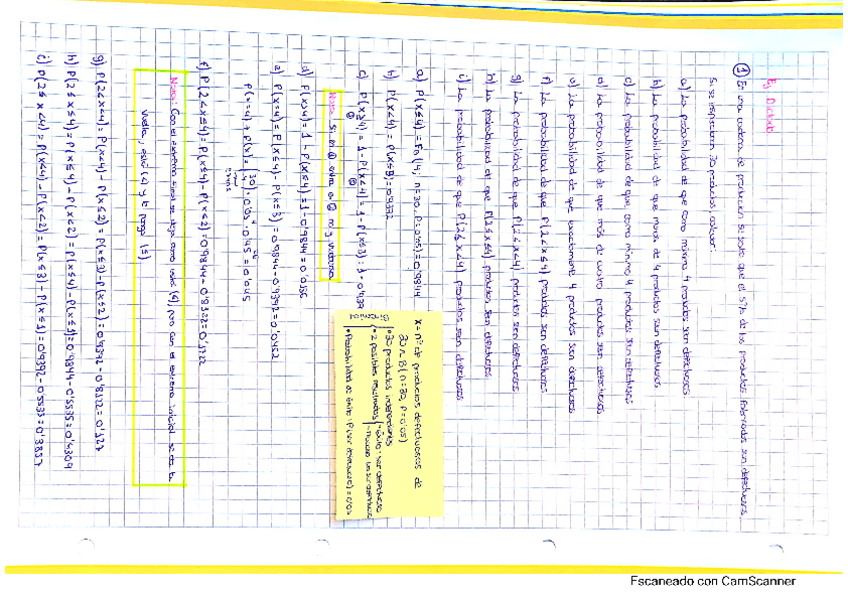 Ej. Dictado
① En una cadena de producción se sabe que el 5% de los productos fabricados son defectuosos.
Si se inspeccionan 30 productos, calcular:
a) La probabilidad de que como máximo 4 productos sean defectuosos
b) La probabilidad de que menos de 4 productos sean defectuosos
c) La probabilidad de que como mínimo 4 productos sean defectuosos
d) La probabilidad de que más de cuatro productos sean defectuosos
e) La probabilidad de que exactamente 4 productos sean defectuosos
f) La probabilidad de que P(2<x≤4) productos sean defectuosos
g) La probabilidad de que P(2<x<4) productos sean defectuosos
h) La probabilidad de que P(2≤x≤4) productos sean defectuosos
i) La probabilidad de que P(2≤x<4) productos sean defectuosos
x = nº de productos defectuosos de
30 ~ B(n=30, p=0'05)
• 30 productos independientes
• 2 posibles resultados
Éxito: ser defectuoso
• Probabilidad de éxito: P(ser defectuoso) = 0'05
a) P(x≤4) = Fn(4; n=30, p=0'05) = 0'9844
b) P(x<4) = P(x≤3) = 0'9392
c) P(x≥4) = 1 - P(x<4) = 1 - P(x≤3) = 1 -
Nota: Si
d) P(x>4) = 1 - P(x≤4) = 1 - 0'9844 = 0'0156
e) P(x=4) = P(x≤4) - P(x≤3) = 0'9844 - 0'9392 = 0'0452
f) P(2<x≤4) = P(x≤4) - P(x≤2) = 0'9844 - 0'8122 = 0'1722
Nota: Con el extremo final se deja como está (≤), pero con el extremo inicial se da la
vuelta, está (<) y lo pongo (≤)
g) P(2<x<4) = P(x<4) - P(x≤2) = P(x≤3) - P(x≤2) = 0'9392 - 0'8122 = 0'127
h) P(2≤x≤4) = P(x≤4) - P(x<2) = P(x≤4) - P(x≤1) = 0'9844 - 0'5535 = 0'4309
i) P(2≤x<4) = P(x<4) - P(x<2) = P(x≤3) - P(x≤1) = 0'9392 - 0'5535 = 0'3857
Escaneado con CamScanner